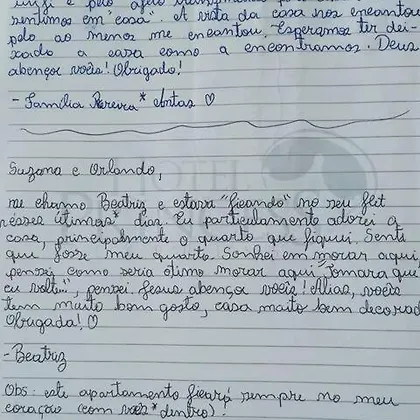 sentimos em "casa". A vista da casa nos encantou
pelo ao menos me encantou, Esperamos ter dei-
xado a casa como a encontramos. Deus
abençoe vocês! Obrigado!
- Família Pereira* ♡
Suzana e Orlando,
me chamo Beatriz e estava "ficando" no seu flet
nesses últimos* dias. Eu particulamente adorei a
casa, principalmente o quarto que fiquei. Senti
que fosse meu quarto. Sonhei em morar aqui,
pensei como seria ótimo morar aqui. "Tomara que
eu volte...", pensei. Jesus abençoe vocês! Alias, vocês
tem muito bom gosto, casa muito bem decorad
Obrigada! ♡
- Beatriz
Obs: este apartamento ficará sempre no meu
coração (com vocês* dentro)!